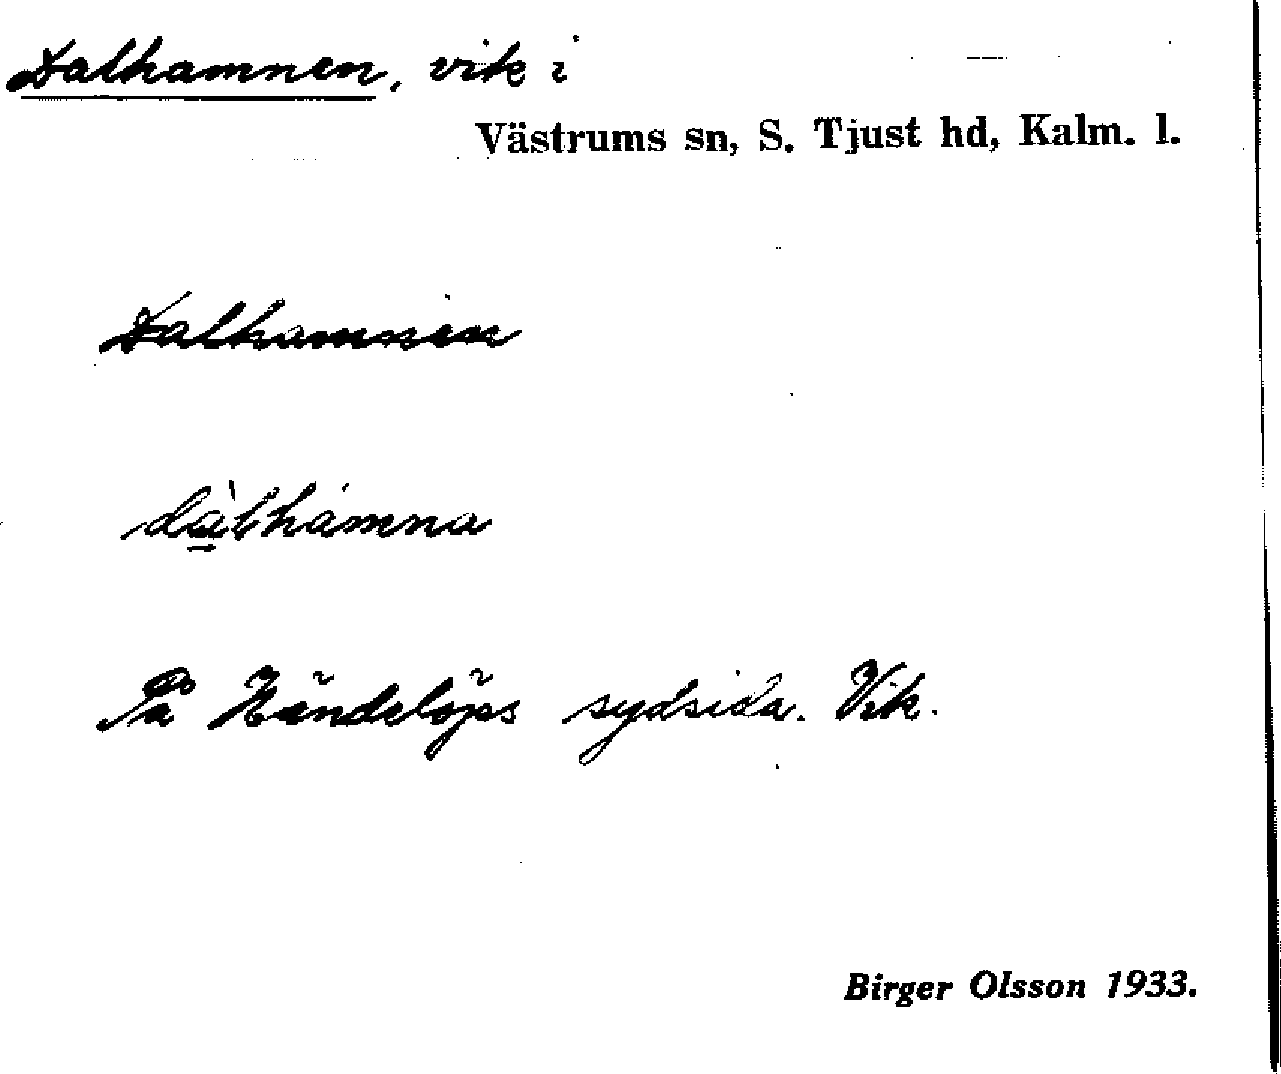 Dalhamnen, vik i
Västrums sn, S. Tjust hd, Kalm. l.
Dalhamnen
dàlhámna
På Händelöps sydsida. Vik.
Birger Olsson 1933.